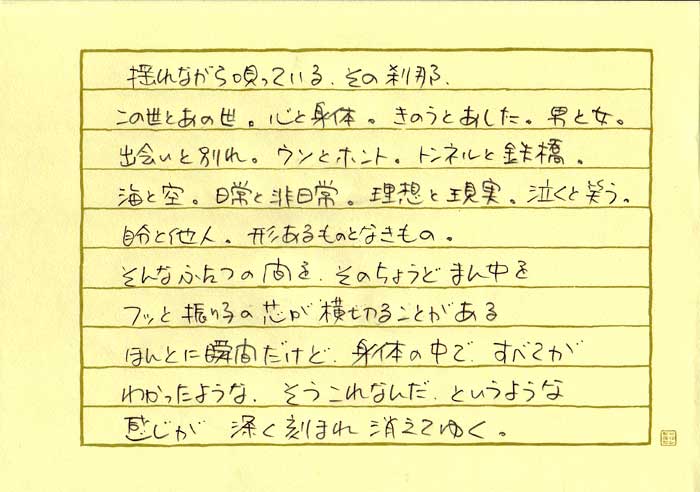 揺れながら唄っている、その刹那、
この世とあの世。心と身体。きのうとあした。男と女。
出会いと別れ。ウソとホント。トンネルと鉄橋。
海と空。日常と非日常。理想と現実。泣くと笑う。
自分と他人。形あるものとなきもの。
そんなふたつの間を、そのちょうどまん中を
フッと振り子の芯が横切ることがある
ほんとに瞬間だけど、身体の中で、すべてが
わかったような、そうこれなんだ、というような
感じが 深く刻まれ 消えてゆく。